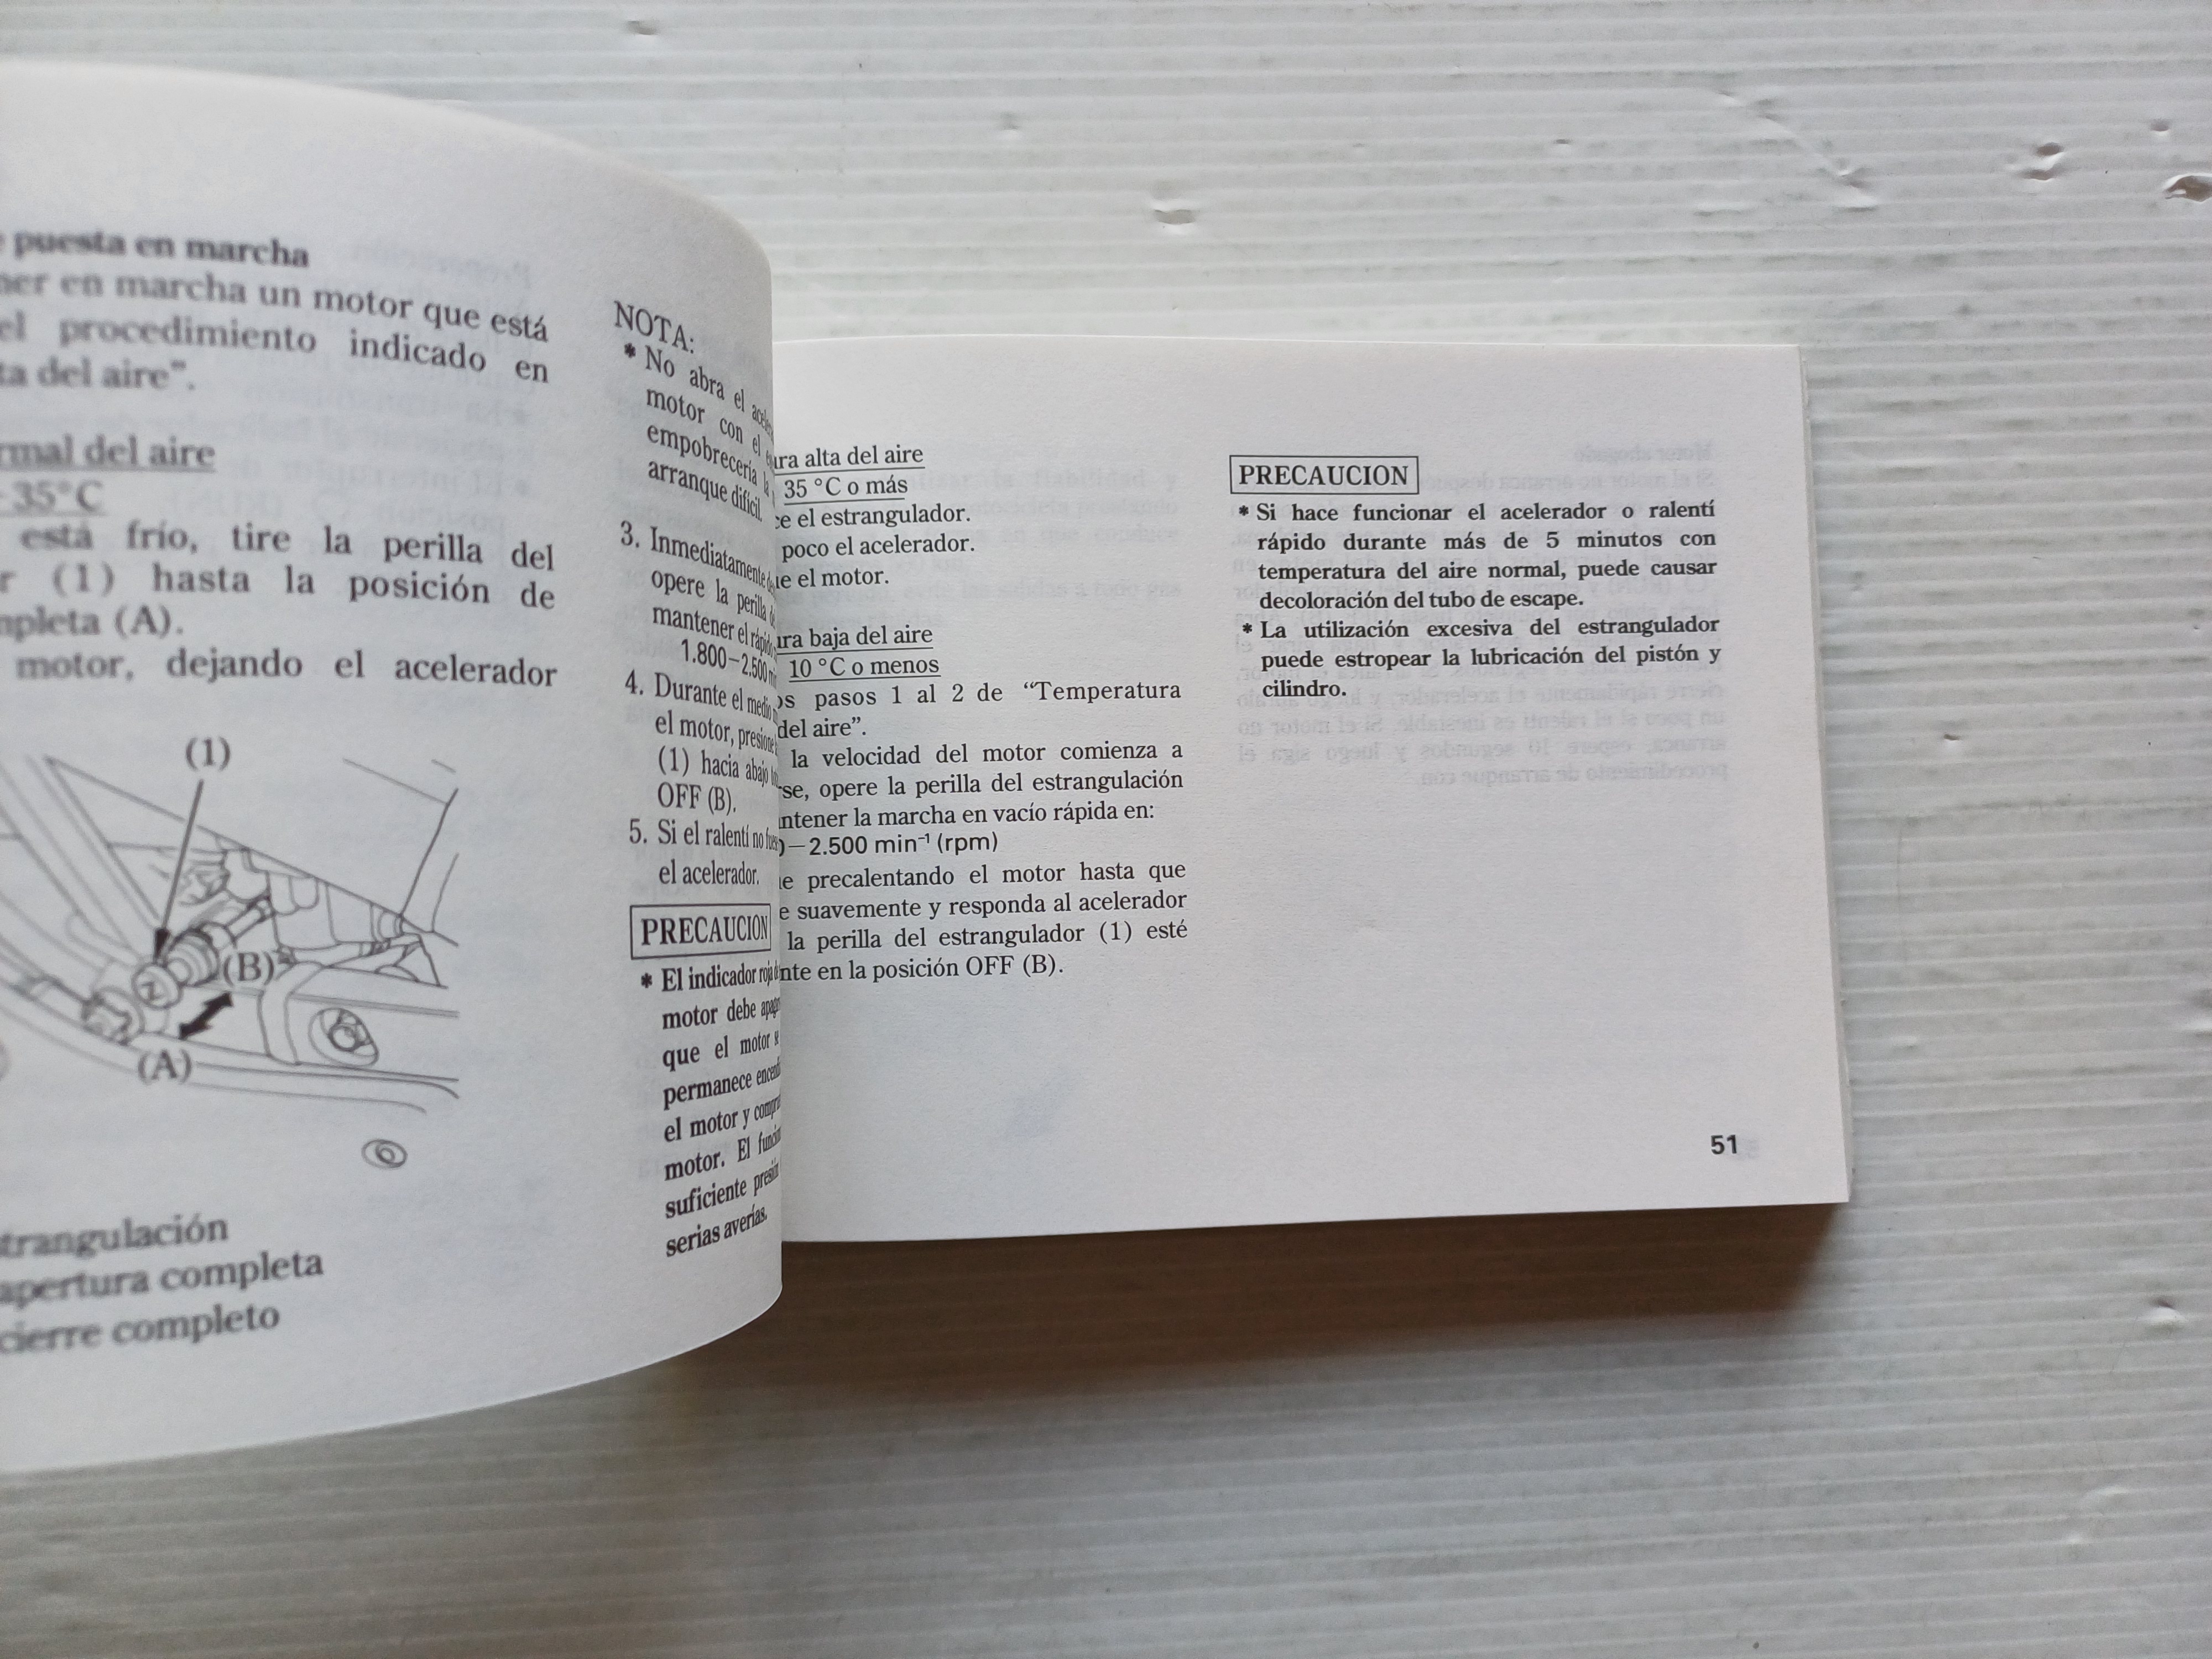 puesta en marcha
en marcha un motor que está
el procedimiento indicado en
del aire”.
del aire
35°C
está frío, tire la perilla del
(1) hasta la posición de
(A).
motor, dejando el acelerador
(1)
(B)
(A)
apertura completa
cierre completo
NOTA:
* No abra el
motor con el
empobrecería la
arranque difícil.
3. Inmediatamente
opere la perilla
mantener el
1.800–2.500
4. Durante el medio
el motor, presione
(1) hacia abajo
OFF (B).
5. Si el ralentí no
el acelerador.
PRECAUCION
* El indicador
motor debe
que el motor
permanece
el motor y
motor. El
suficiente
serias averías.
alta del aire
35 °C o más
el estrangulador.
poco el acelerador.
el motor.
baja del aire
10 °C o menos
pasos 1 al 2 de “Temperatura
del aire”.
la velocidad del motor comienza a
opere la perilla del estrangulación
la marcha en vacío rápida en:
–2.500 min⁻¹ (rpm)
precalentando el motor hasta que
suavemente y responda al acelerador
la perilla del estrangulador (1) esté
en la posición OFF (B).
PRECAUCION
* Si hace funcionar el acelerador o ralentí
rápido durante más de 5 minutos con
temperatura del aire normal, puede causar
decoloración del tubo de escape.
* La utilización excesiva del estrangulador
puede estropear la lubricación del pistón y
cilindro.
51